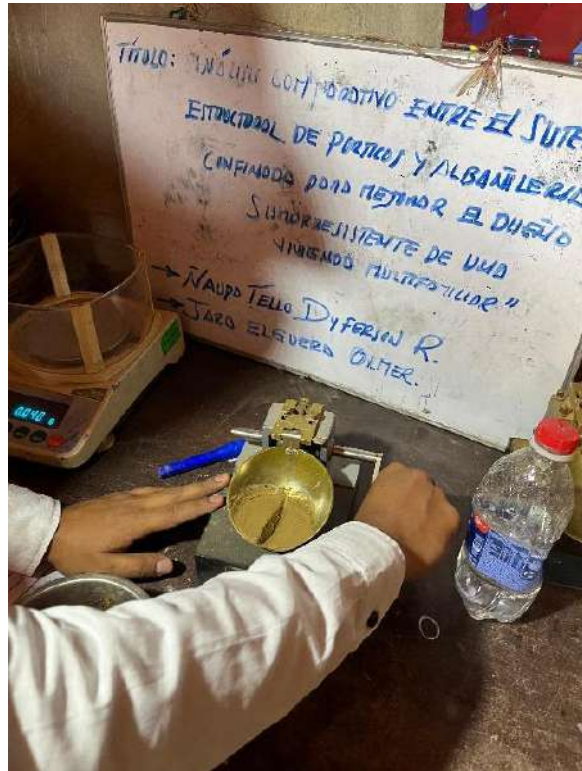 TÍTULO: ANÁLISIS COMPARATIVO ENTRE EL SISTE
ESTRUCTURAL DE PORTICOS Y ALBAÑILERIA
CONFINADA PARA MEJORAR EL DISEÑO
SISMORRESISTENTE DE UNA
VIVIENDA MULTIFAMILIAR"
→ ÑAUPA TELLO DYFERSON R.
→ JARA ELGUERA OLMER.
0.040